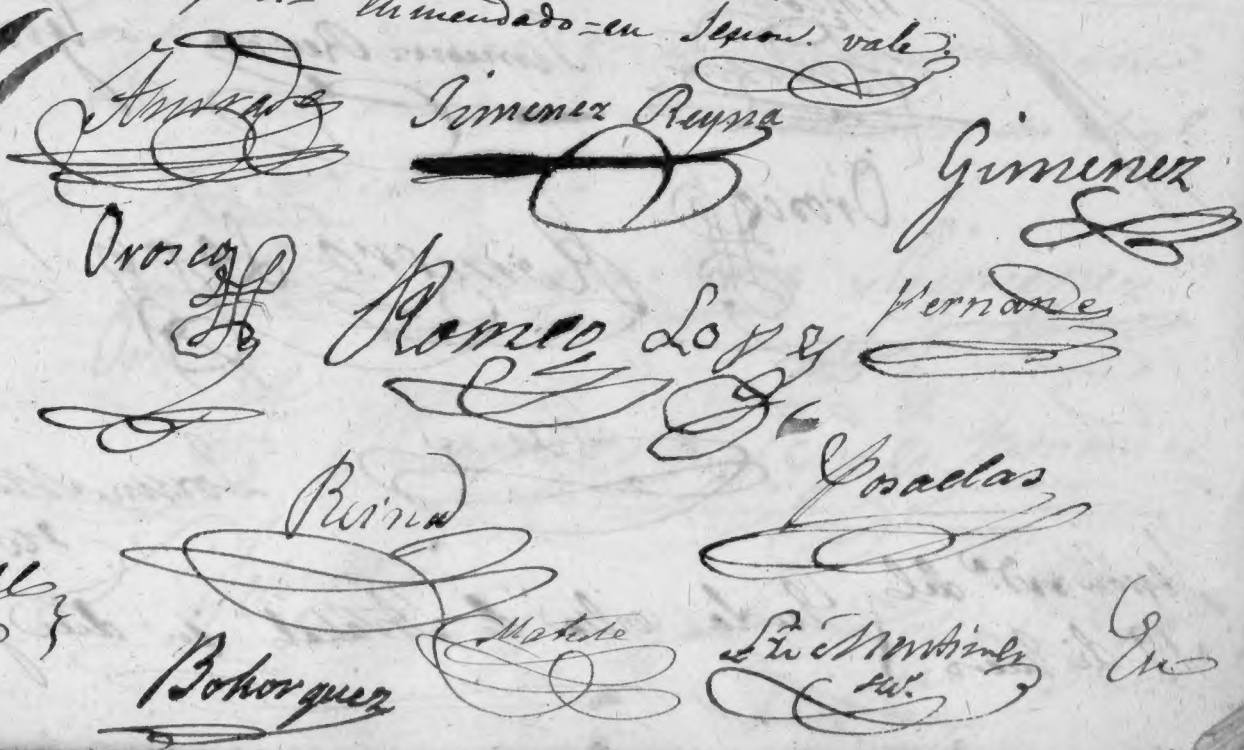 Enmendado=en Sesion. vale.
Andrade Jimenez Reyna
Gimenez
Orosco Romeo Lopez Fernande
Reina Posadas
Bohorquez Martinez
srio.
En